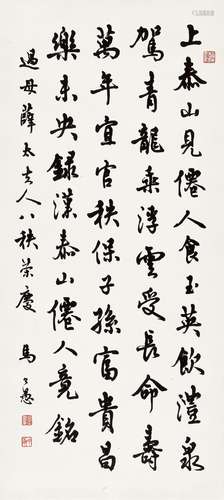 上泰山見僊人食玉英飲澧泉
駕青龍乘浮雲受長命壽
萬年宜官秩保子孫富貴昌
樂未央錄漢泰山僊人竟銘
母薛太夫人八秩榮慶 馬公愚